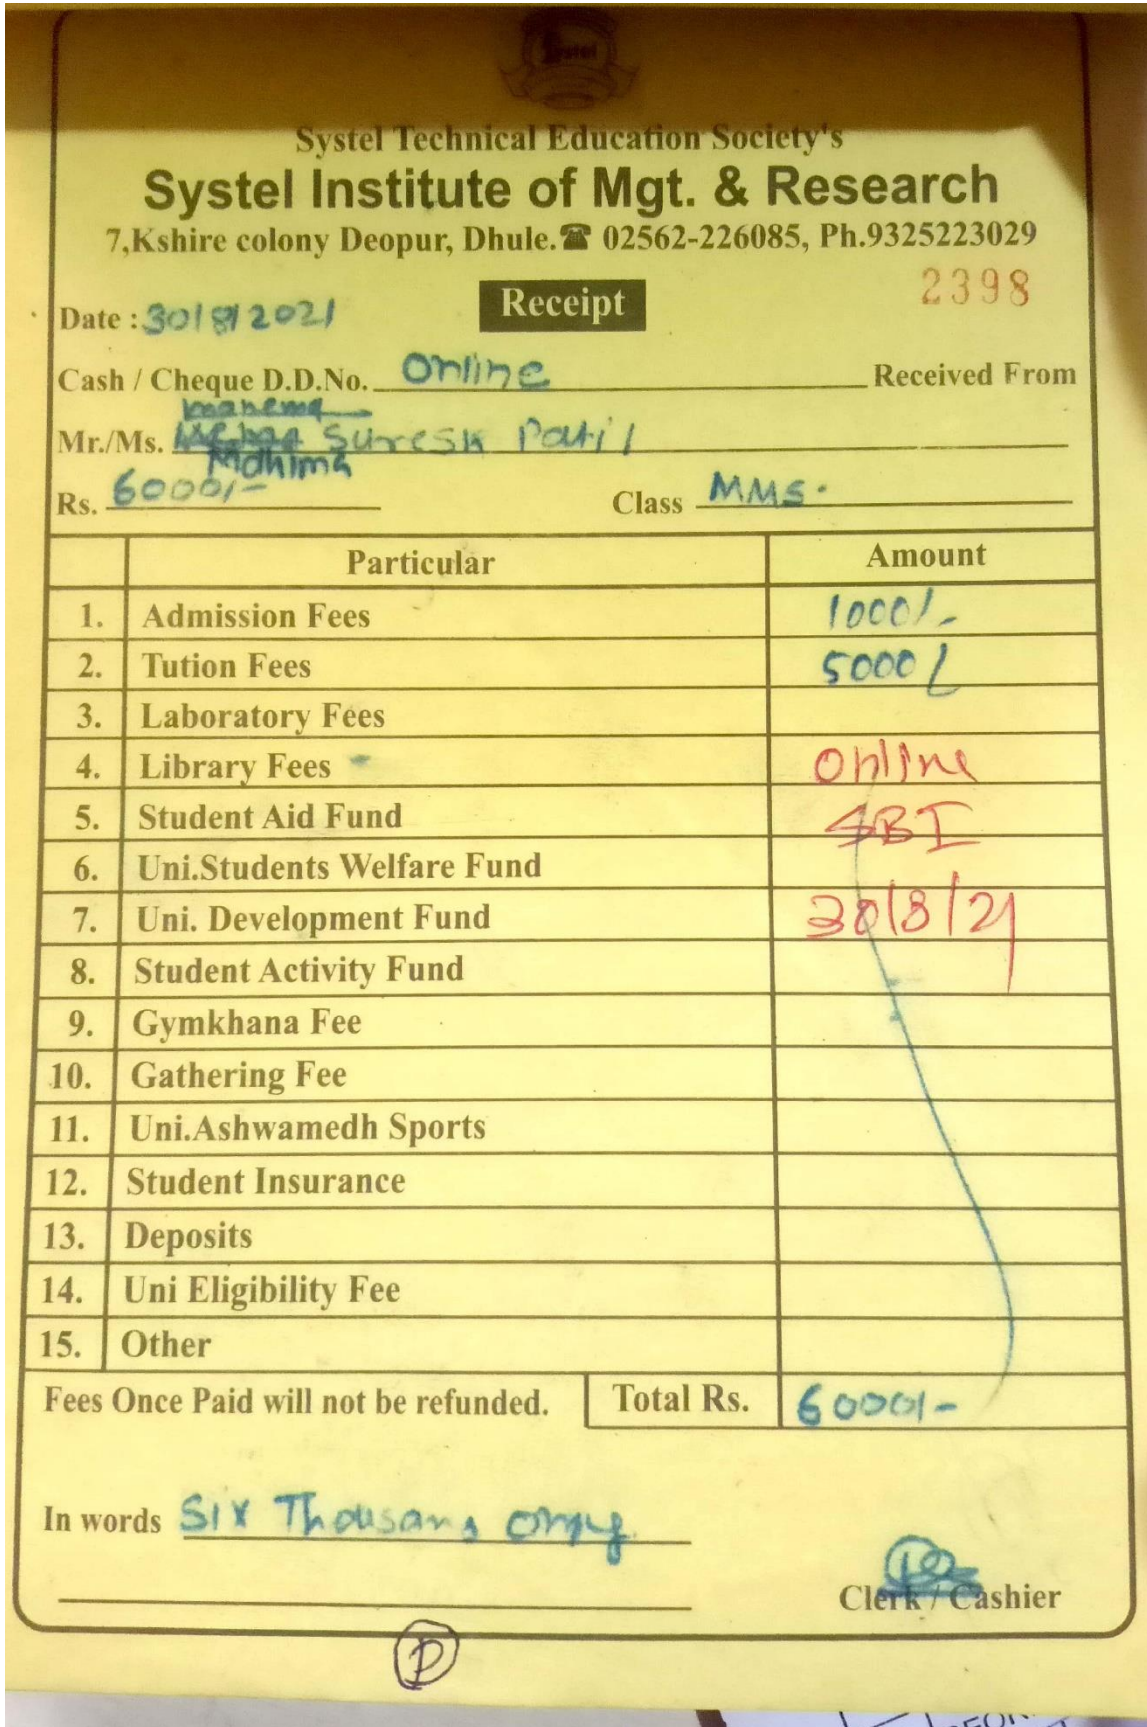 Systel
Systel Technical Education Society's
Systel Institute of Mgt. & Research
7,Kshire colony Deopur, Dhule.☎ 02562-226085, Ph.9325223029
2398
Receipt
Date : 30/8/2021
Cash / Cheque D.D.No. Online Received From
Mr./Ms. Suresh Patil
Mahima
Rs. 6000/- Class MMS.
Particular Amount
1. Admission Fees 1000/-
2. Tution Fees 5000/
3. Laboratory Fees
4. Library Fees Online
5. Student Aid Fund SBI
6. Uni.Students Welfare Fund
7. Uni. Development Fund 30/8/21
8. Student Activity Fund
9. Gymkhana Fee
10. Gathering Fee
11. Uni.Ashwamedh Sports
12. Student Insurance
13. Deposits
14. Uni Eligibility Fee
15. Other
Fees Once Paid will not be refunded. Total Rs. 6000/-
In words Six Thousand only
Clerk / Cashier
P